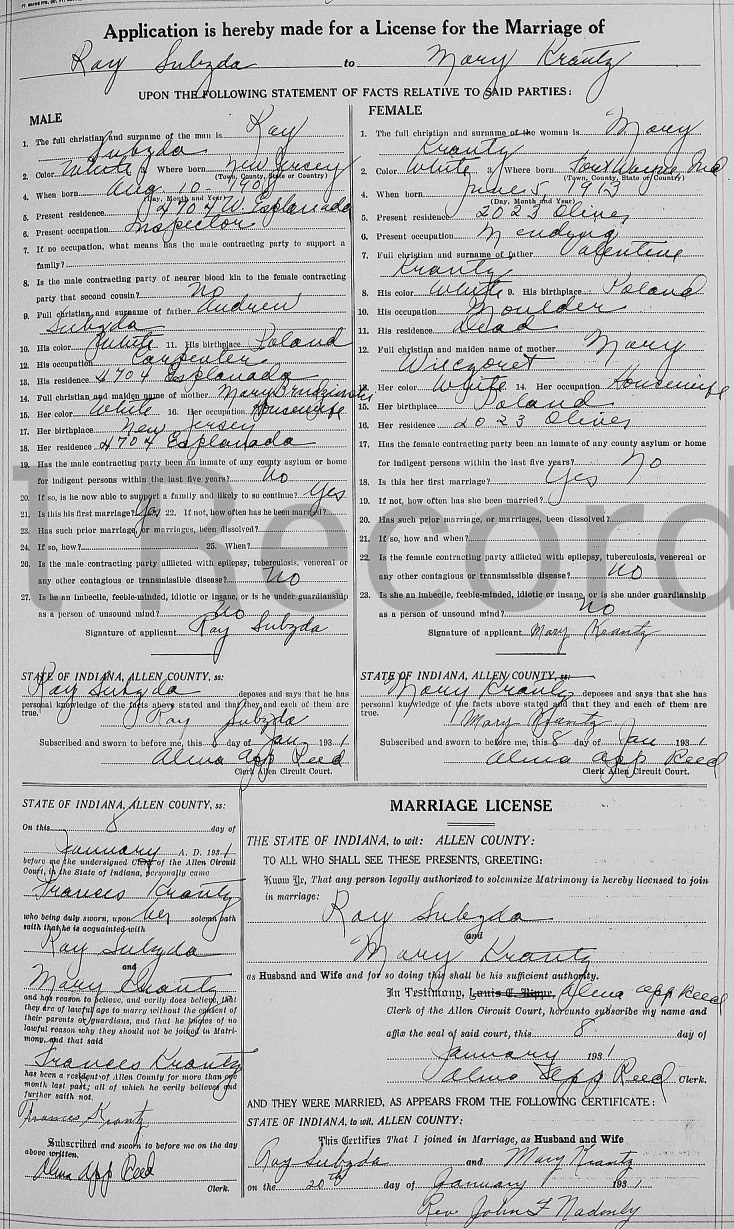 Application is hereby made for a License for the Marriage of
Ray Subzda to Mary Krantz
UPON THE FOLLOWING STATEMENT OF FACTS RELATIVE TO SAID PARTIES:
MALE
1. The full christian and surname of the man is Ray
Subzda
2. Color White 3. Where born New Jersey
(Town, County, State or Country)
4. When born Aug 10 - 190
(Day, Month and Year)
5. Present residence 4704 W. Esplanada
6. Present occupation Inspector
7. If no occupation, what means has the male contracting party to support a
family?
8. Is the male contracting party of nearer blood kin to the female contracting
party than second cousin? No
9. Full christian and surname of father Andrew
Subzda
10. His color White 11. His birthplace Poland
12. His occupation Carpenter
13. His residence 4704 Esplanada
14. Full christian and maiden name of mother Mary Brudzinski
15. Her color White 16. Her occupation Housewife
17. Her birthplace New Jersey
18. Her residence 4704 Esplanada
19. Has the male contracting party been an inmate of any county asylum or home
for indigent persons within the last five years? No
20. If so, is he now able to support a family and likely to so continue? Yes
21. Is this his first marriage? Yes 22. If not, how often has he been married?
23. Has such prior marriage, or marriages, been dissolved?
24. If so, how? 25. When?
26. Is the male contracting party afflicted with epilepsy, tuberculosis, venereal or
any other contagious or transmissible disease? No
27. Is he an imbecile, feeble-minded, idiotic or insane, or is he under guardianship
as a person of unsound mind? No
Signature of applicant Ray Subzda
STATE OF INDIANA, ALLEN COUNTY, ss:
Ray Subzda deposes and says that he has
personal knowledge of the facts above stated and that they and each of them are
true. Ray Subzda
Subscribed and sworn to before me, this 8 day of Jan, 1931
Alma App Reed
Clerk Allen Circuit Court.
FEMALE
1. The full christian and surname of the woman is Mary
Krantz
2. Color White 3. Where born Fort Wayne, Ind
(Town, County, State or Country)
4. When born June 5 1913
(Day, Month and Year)
5. Present residence 2023 Olive
6. Present occupation Mending
7. Full christian and surname of father Valentine
Krantz
8. His color White 9. His birthplace Poland
10. His occupation Moulder
11. His residence Dead
12. Full christian and maiden name of mother Mary
Wieczoret
13. Her color White 14. Her occupation Housewife
15. Her birthplace Poland
16. Her residence 2023 Olive
17. Has the female contracting party been an inmate of any county asylum or home
for indigent persons within the last five years? No
18. Is this her first marriage? Yes
19. If not, how often has she been married?
20. Has such prior marriage, or marriages, been dissolved?
21. If so, how and when?
22. Is the female contracting party afflicted with epilepsy, tuberculosis, venereal or
any other contagious or transmissible disease? No
23. Is she an imbecile, feeble-minded, idiotic or insane, or is she under guardianship
as a person of unsound mind? No
Signature of applicant Mary Krantz
STATE OF INDIANA, ALLEN COUNTY, ss:
Mary Krantz deposes and says that she has
personal knowledge of the facts above stated and that they and each of them are
true. Mary Krantz
Subscribed and sworn to before me, this 8 day of Jan 1931
Alma App Reed
Clerk Allen Circuit Court.
STATE OF INDIANA, ALLEN COUNTY, ss:
On this 8 day of
January A. D. 1931
before me the undersigned Clerk of the Allen Circuit
Court, in the State of Indiana, personally came
Frances Krantz
who being duly sworn, upon her solemn oath
saith that he is acquainted with
Ray Subzda
and
Mary Krantz
and has reason to believe, and verily does believe, that
they are of lawful age to marry without the consent of
their parents or guardians, and that he knows of no
lawful reason why they should not be joined in Matri-
mony, and that said
Frances Krantz
has been a resident of Allen County for more than one
month last past; all of which he verily believes and
further saith not.
Frances Krantz
Subscribed and sworn to before me on the day
above written.
Alma App Reed
Clerk.
MARRIAGE LICENSE
THE STATE OF INDIANA, to wit: ALLEN COUNTY:
TO ALL WHO SHALL SEE THESE PRESENTS, GREETING:
Know Ye, That any person legally authorized to solemnize Matrimony is hereby licensed to join
in marriage:
Ray Subzda
and
Mary Krantz
as Husband and Wife and for so doing this shall be his sufficient authority.
In Testimony, Alma App Reed
Clerk of the Allen Circuit Court, hereunto subscribe my name and
affix the seal of said court, this 8 day of
January 1931
Alma App Reed Clerk.
AND THEY WERE MARRIED, AS APPEARS FROM THE FOLLOWING CERTIFICATE:
STATE OF INDIANA, to wit, ALLEN COUNTY:
This Certifies That I joined in Marriage, as Husband and Wife
Ray Subzda and Mary Krantz
on the 20th day of January 1931
Rev John F Nadolny
Record